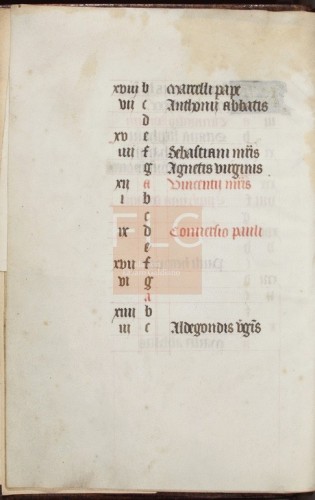 xviij b Marcelli pape
vii c Anthonij abbatis
d
xv e
iiij f Sebastiani mr̄is
g Agnetis virginis
xij a Vincentij mr̄is
i b
c
ix d Conuersio pauli
e
xvij f
vi g
a
xiiij b
iij c Aldegondis v̄gīs
FLG